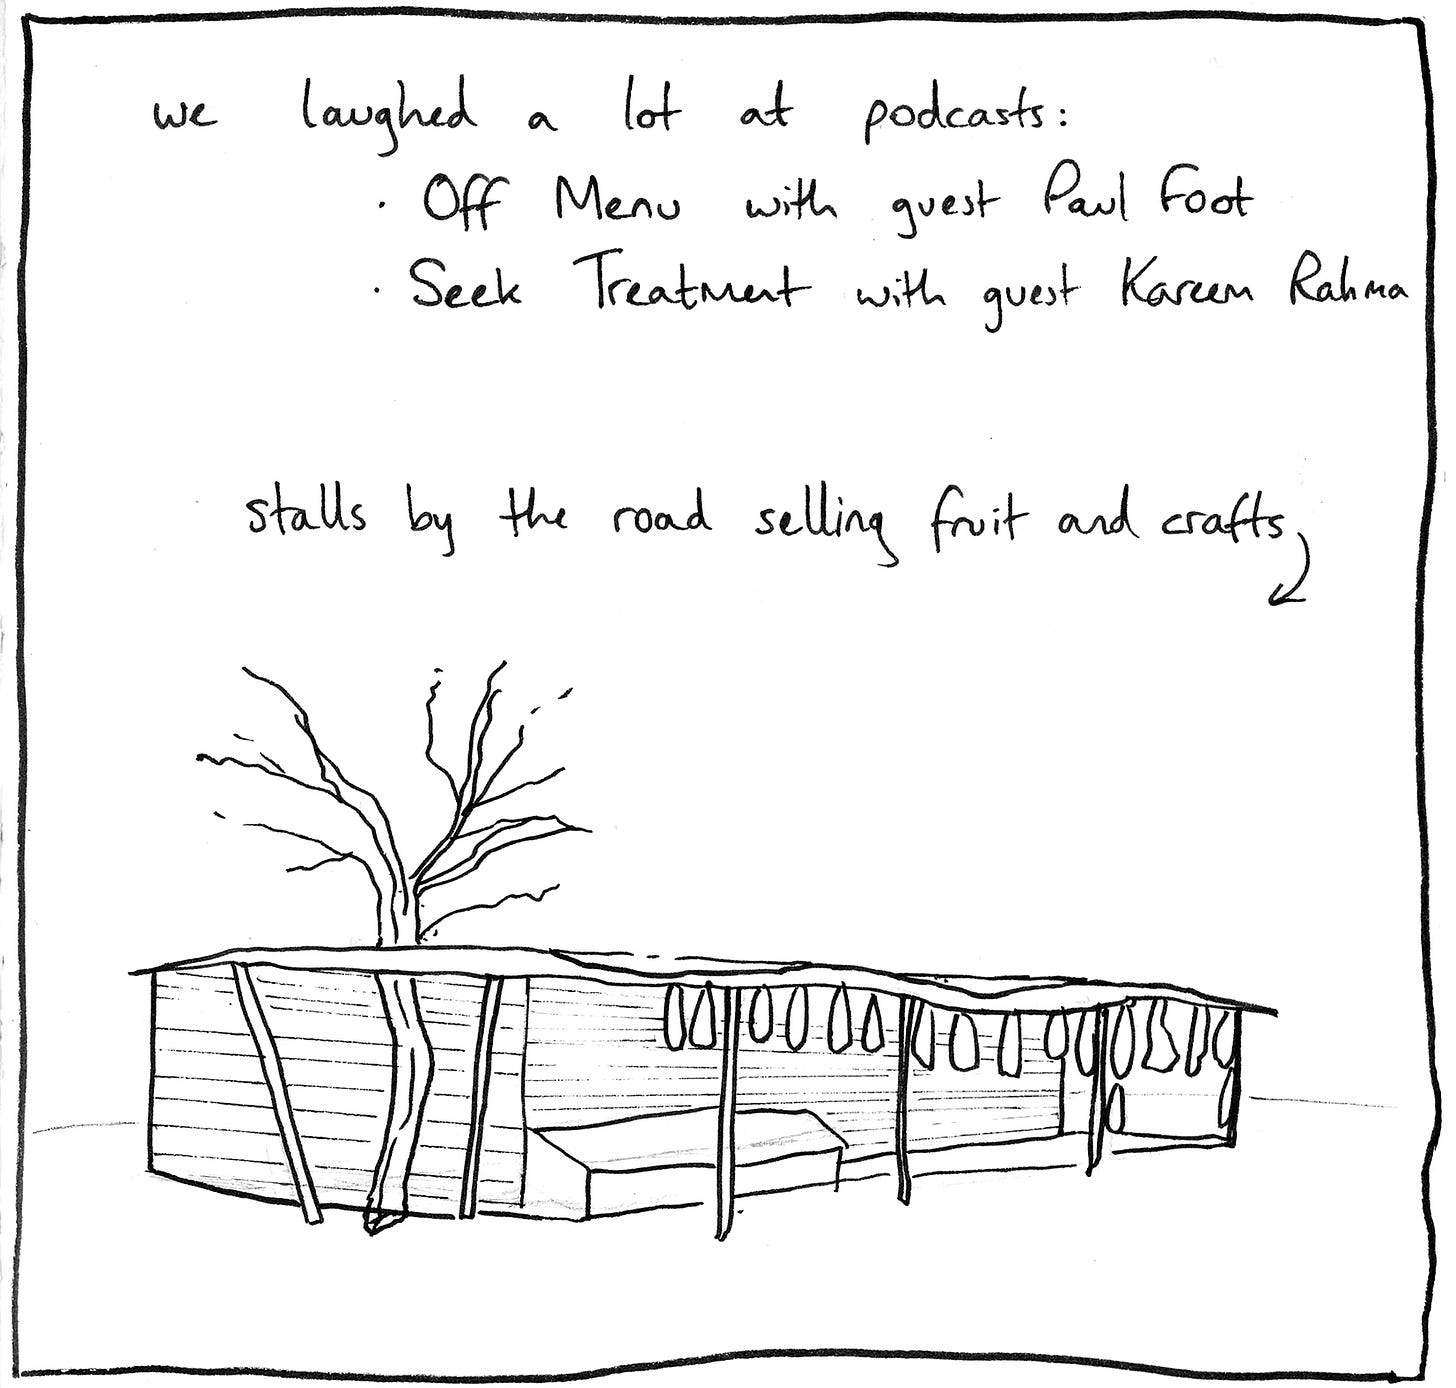 we laughed a lot at podcasts:
· Off Menu with guest Paul Foot
· Seek Treatment with guest Kareem Rahma
stalls by the road selling fruit and crafts